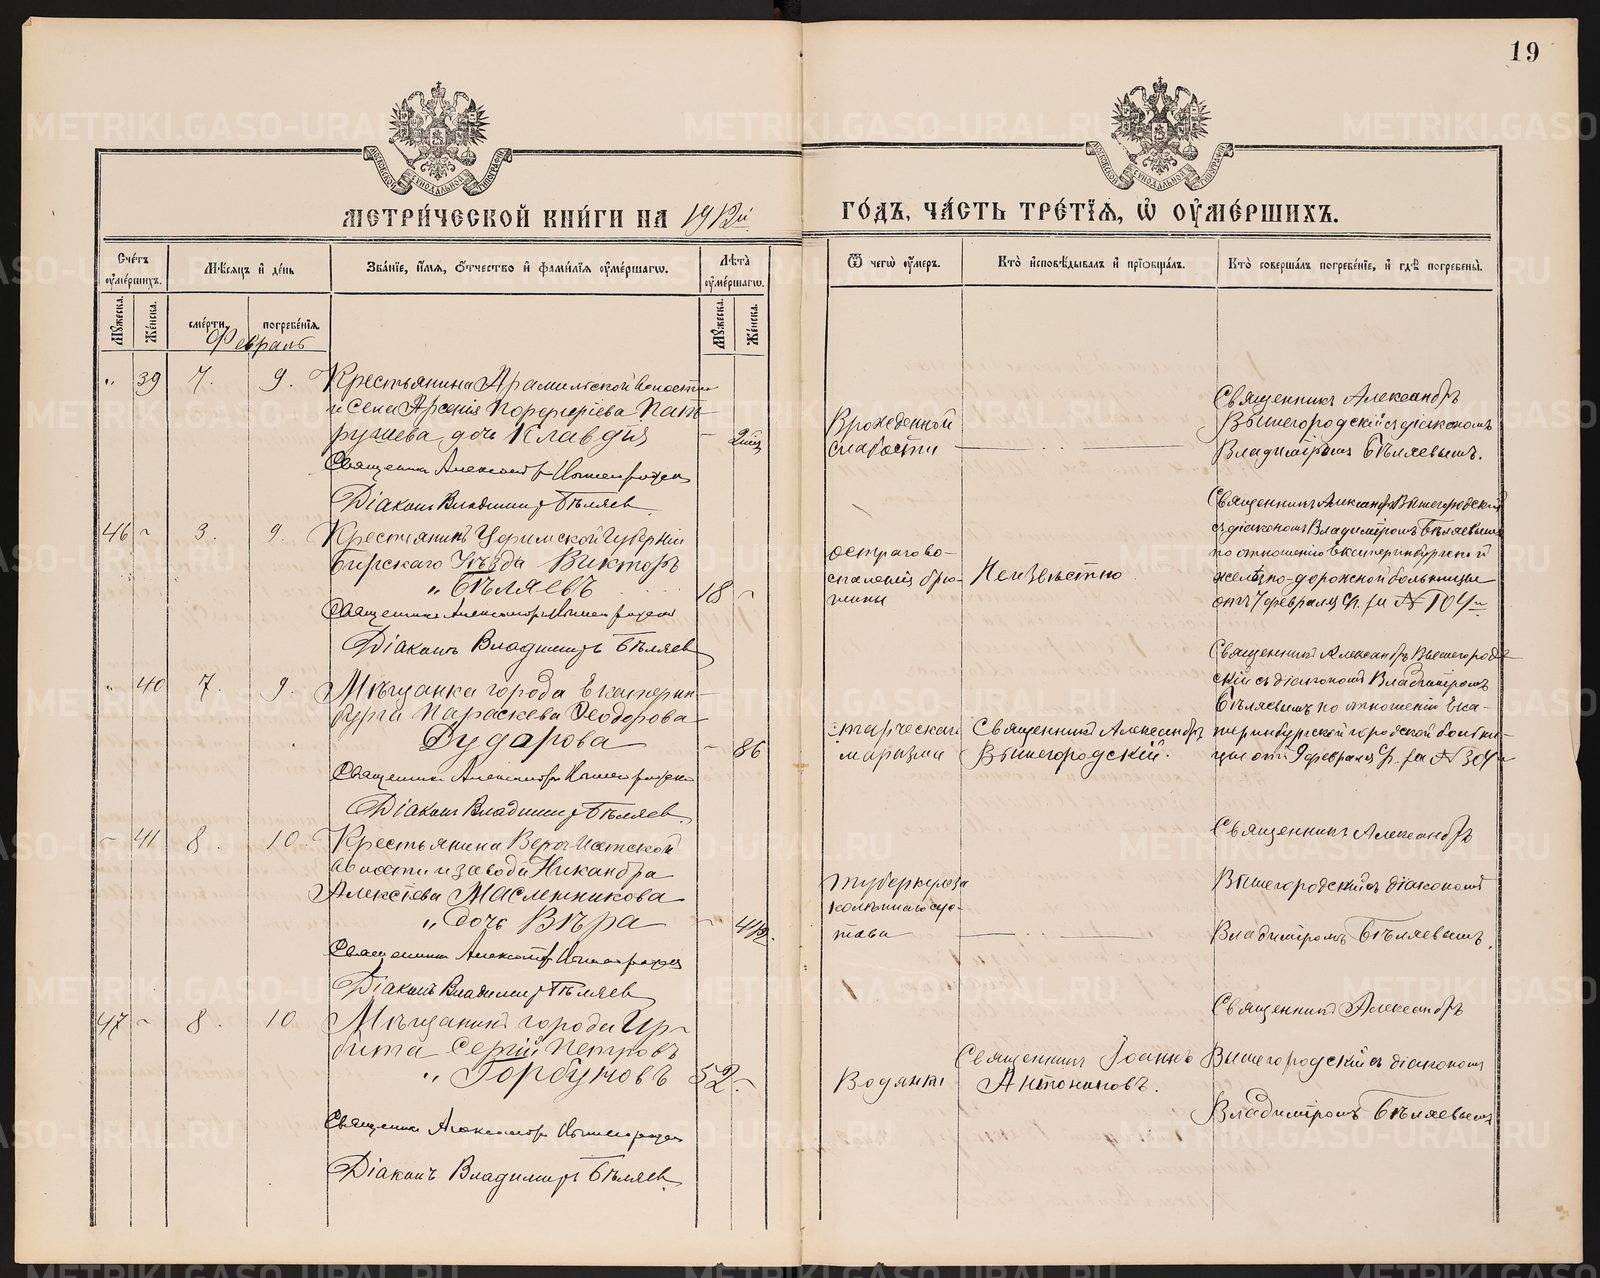 19
МЕТРИ́ЧЕСКОЙ КНИ́ГИ НА 1912й
ГО́ДЪ, ЧА́СТЬ ТРЕ́ТІѦ, Ѡ҆ ОУ҆МЕ́РШИХЪ.
Сче́тъ оу҆ме́ршихъ.
Мѣ́сяцъ и҆ де́нь
Зва́ніе, и҆́мѧ, ѻ҆́тчество и҆ фами́лїѧ оу҆ме́ршагѡ.
Лѣ́та оу҆ме́ршагѡ.
Ѿ чегѡ̀ оу҆́меръ.
Кто̀ и҆сповѣ́дывалъ и҆ прїѡбща́лъ.
Кто̀ соверша́лъ погребе́ніе, и҆ гдѣ̀ погребены̀.
Мꙋ́жеска.
Же́нска.
сме́рти.
погребе́нїѧ.
Мꙋ́жеска.
Же́нска.
Февраль
" 39 7. 9. Крестьянина Арамильской волости
и села Арсенія Порфиріева Пат
рушева дочь Клавдія - 2 мѣс
Священникъ Александръ Вышегородскій
Діаконъ Владимиръ Бѣляевъ
Врожденной
слабости
Священникъ Александръ
Вышегородскій съ діакономъ
Владиміромъ Бѣляевымъ.
46 - 3. 9. Крестьянинъ Уфимской губерніи
Бирскаго Уѣзда Викторъ
" Бѣляевъ 18 -
Священникъ Александръ Вышегородскій
Діаконъ Владимиръ Бѣляевъ
остраго во-
спаленія брю-
шины
Неизвѣстно
Священникъ Александръ Вышегородскій
съ діакономъ Владиміромъ Бѣляевымъ
по отношенію Екатеринбургской
желѣзно-дорожной больницы
отъ 7 февраля с/г. за № 104
" 40 7. 9. Мѣщанка города Екатерин-
бурга Параскева Ѳеодорова
Дударова - 86
Священникъ Александръ Вышегородскій
Діаконъ Владимиръ Бѣляевъ
старческаго
маразма
Священникъ Александръ
Вышегородскій.
Священникъ Александръ Вышегород
скій съ діакономъ Владиміромъ
Бѣляевымъ по отношенію Ека-
теринбургской городской больни-
цы отъ 9 февраля с/г. за № 304
- 41 8. 10 Крестьянина Верхъ-Исетской
волости и завода Никандра
Алексѣева Масленникова
" дочь Вѣра -
Священникъ Александръ Вышегородскій
Діаконъ Владимиръ Бѣляевъ
туберкулеза
колѣннаго сус-
тава
Священникъ Александръ
Вышегородскій съ діакономъ
Владиміромъ Бѣляевымъ.
47 - 8. 10 Мѣщанинъ города Ир-
бита Сергій Петровъ
" Горбуновъ 52. -
Священникъ Александръ Вышегородскій
Діаконъ Владимиръ Бѣляевъ
Водянки
Священникъ Іоаннъ
Антониновъ.
Священникъ Александръ
Вышегородскій съ діакономъ
Владиміромъ Бѣляевымъ
METRIKI.GASO-URAL.RU